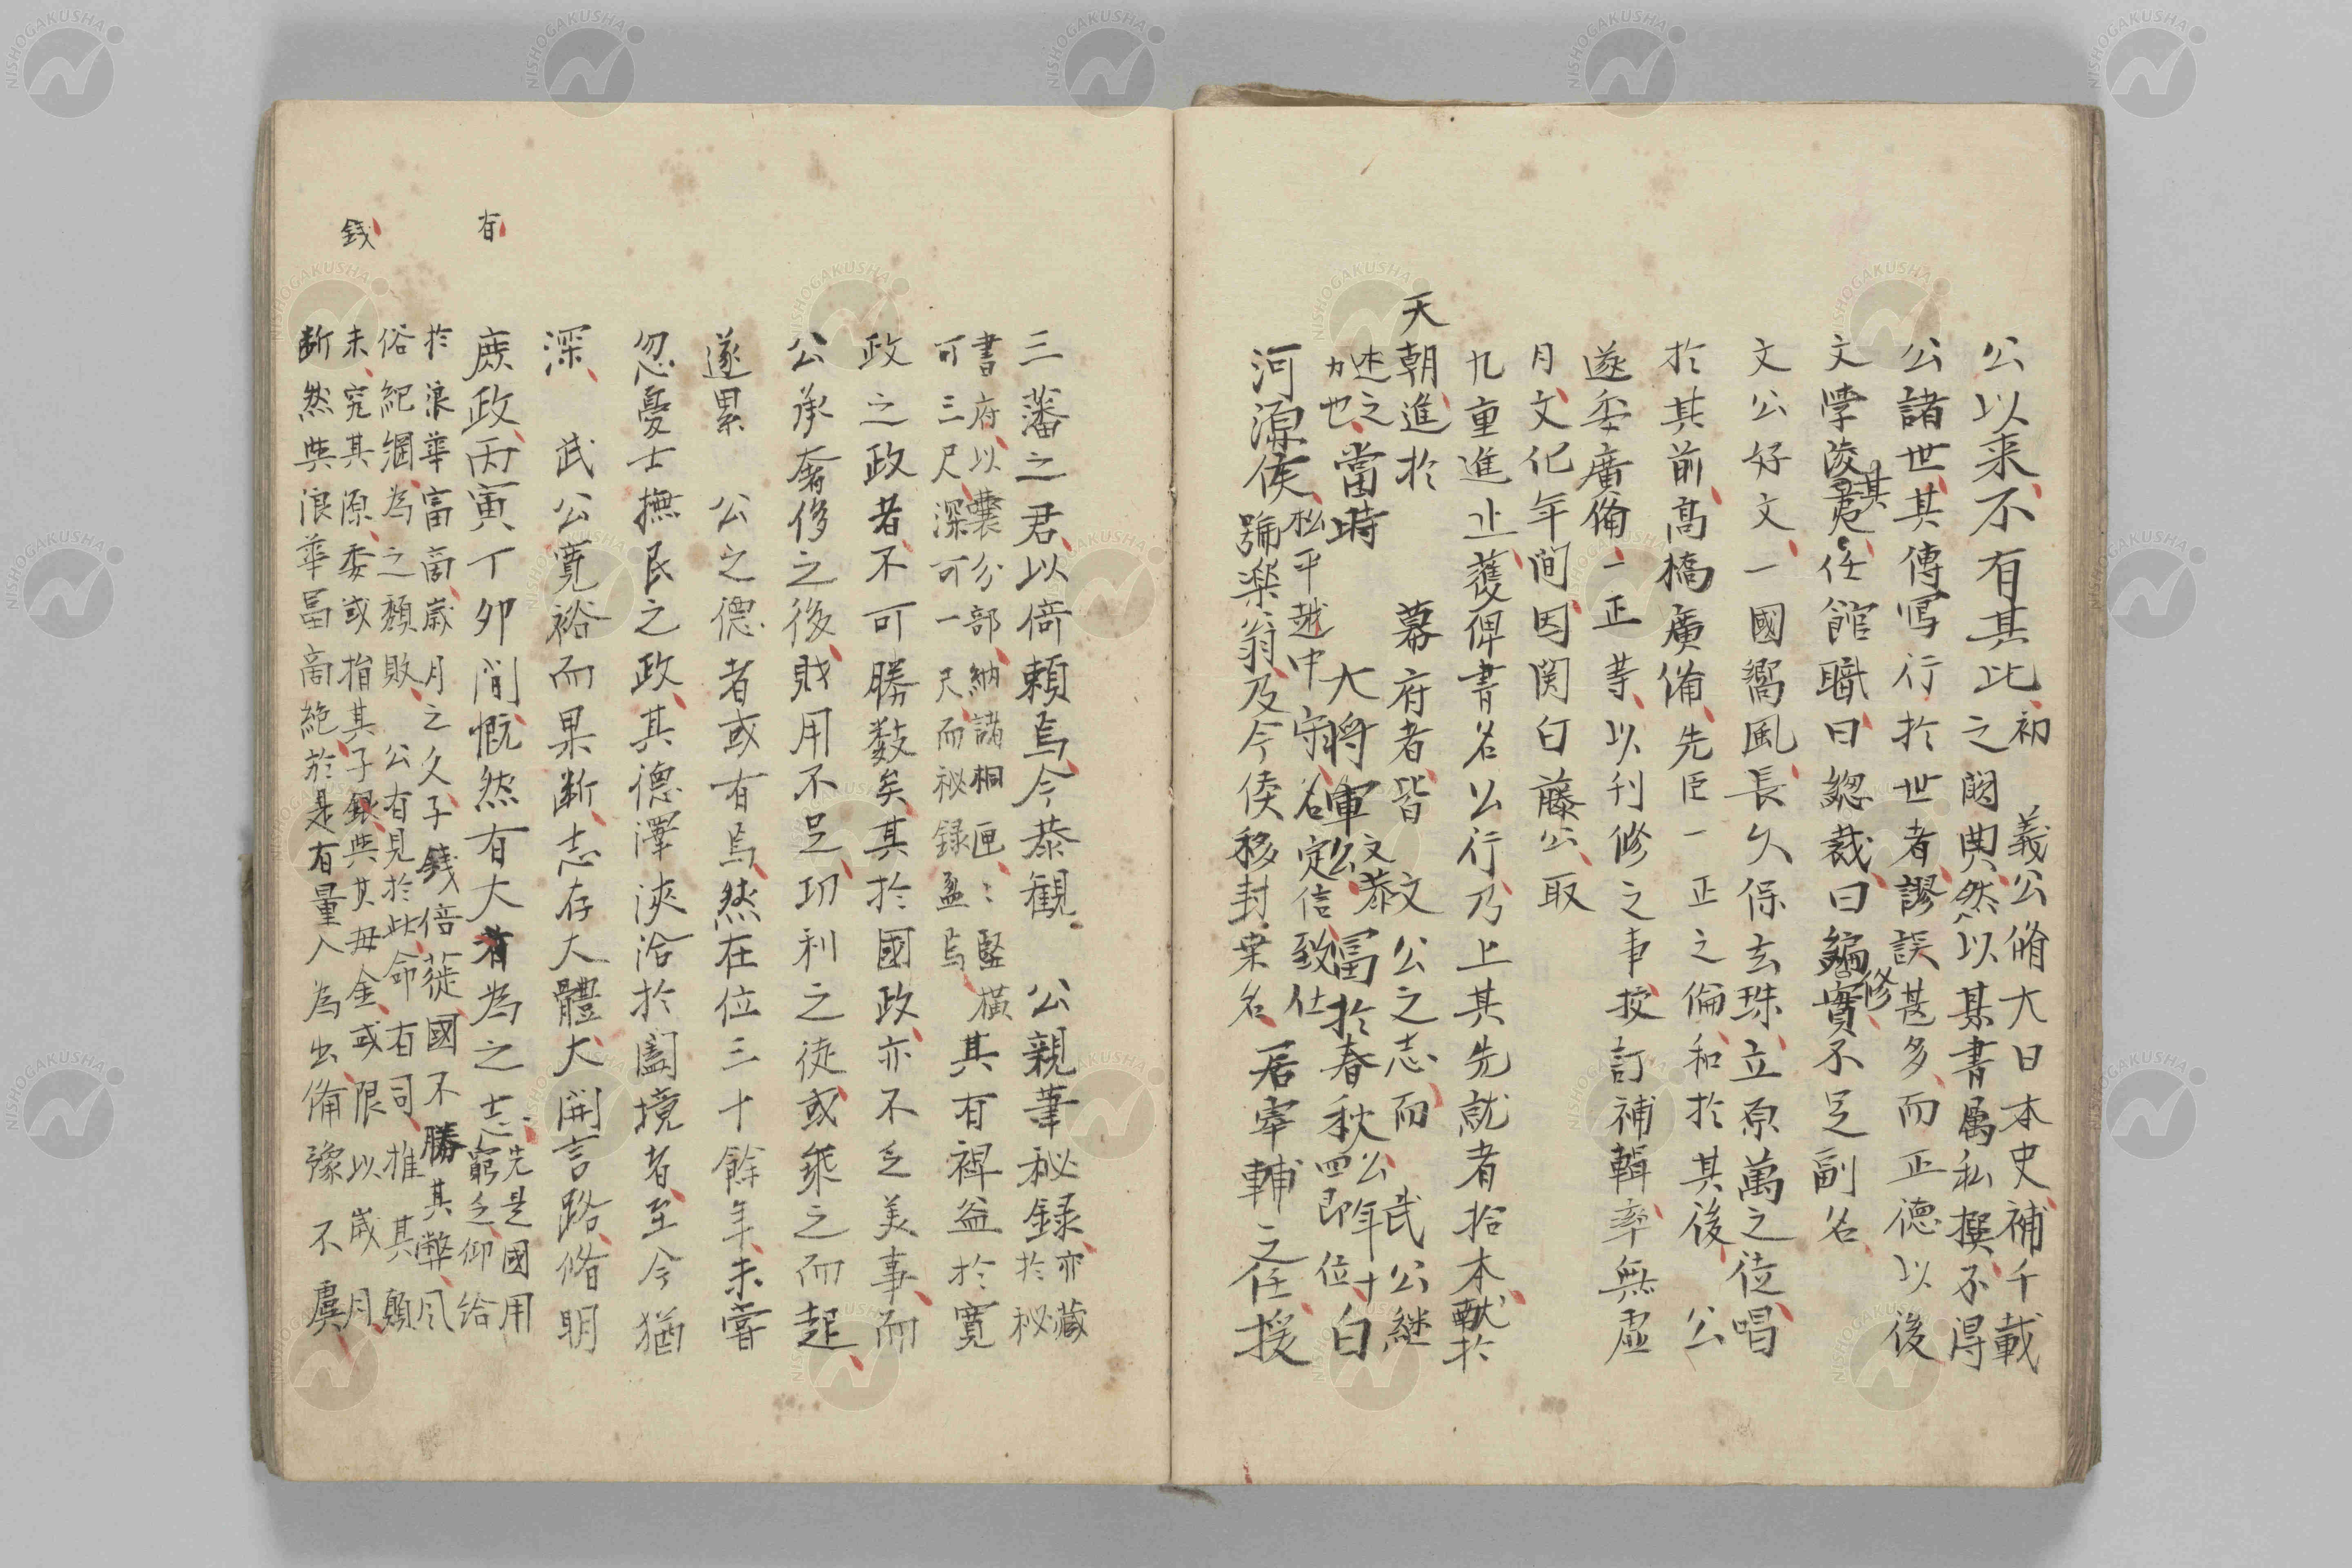 公以来不有其比初義公脩大日本史補千載
之闕典然以某書属私撰不得
公諸世其傳写行於世者謬誤甚多而正徳以後
文学陵夷其任館職曰総裁曰編修實不足副名
文公好文一國嚮風長久保玄珠立原萬之位唱
於其前高橋廣備先臣一正之倫和於其後 公
遂委廣備一正等以刊修之事挍訂補輯率無虚
月文化年間因関白藤公取
九重進止蒦俾書名公行乃上其先就者拾本献於
天朝進於 幕府者皆 文公之志而 武公継
述之力也當時 大将軍文恭公冨於春秋公即位年四十白
河源侯松平越中守名定信致仕號楽翁及今倭移封桒名居宰輔之任援
三藩之君以倚頼焉今恭観 公親筆秘録亦藏於秘
書府以囊分部納諸桐匣〻竪横可三尺深可一尺而秘録盈焉其有裨益於寛
政之政者不可勝数矣其於國政亦不乏美事而
公承奢侈之後財用不足功利之徒或乘之而起
遂累 公之德者或有焉然在位三十餘年未嘗
忽憂士撫民之政其德澤浹洽於闔境者至今猶
深 武公寛裕而果断志存大體大開言路脩明
庶政丙寅丁卯間慨然有大有為之志先是國用窮乏仰給
有
於浪華富商歳月之久子錢倍蓰國不勝其弊風
俗紀綱為之頽敗 公有見於此命有司推其顛
錢
末究其源委或指其子銀與其母金或限以歳月
断然與浪華冨商絶於是有量入為出備豫不虞